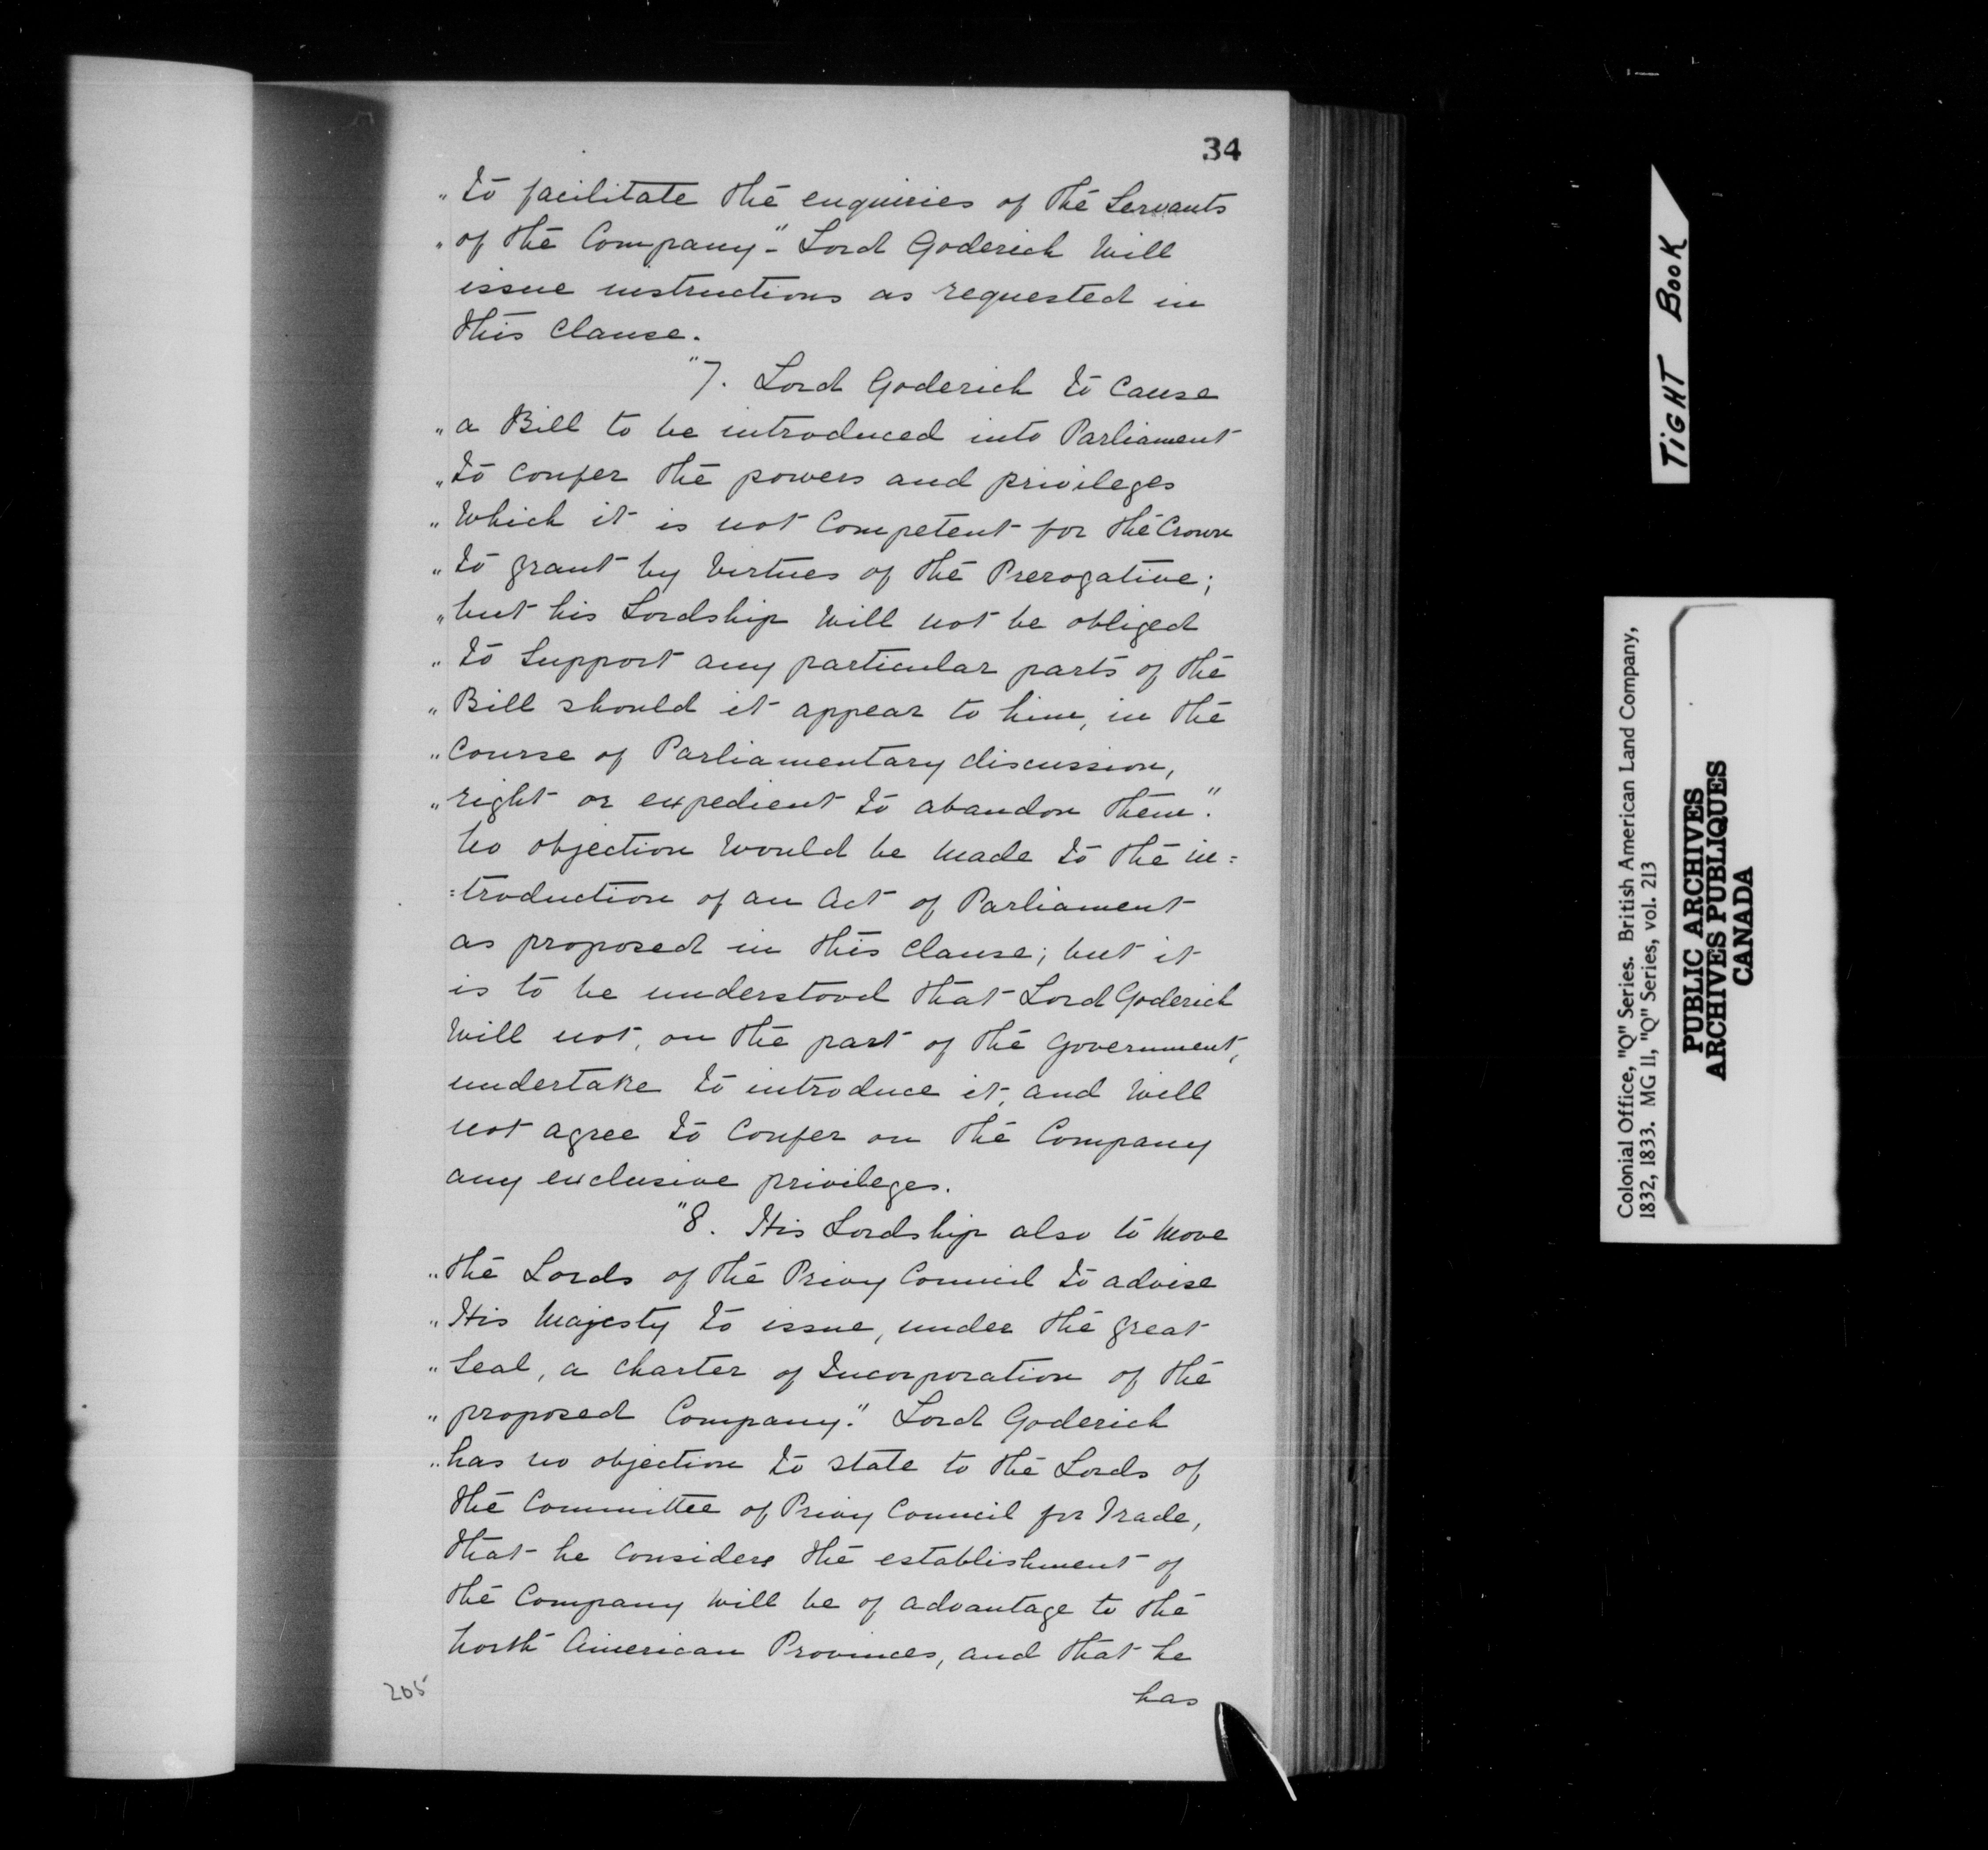 34
„ to facilitate the enquiries of the Servants
„ of the Company." - Lord Goderich will
issue instructions as requested in
this clause.
"7. Lord Goderich to cause
„ a Bill to be introduced into Parliament
„ to confer the powers and privileges
„ which it is not competent for the Crown
„ to grant by virtues of the Prerogative;
„ but his Lordship will not be obliged
„ to support any particular parts of the
„ Bill should it appear to him, in the
„ course of Parliamentary discussion,
„ right or expedient to abandon them."
No objection would be made to the in=
=troduction of an Act of Parliament
as proposed in this clause; but it
is to be understood that Lord Goderich
will not, on the part of the Government,
undertake to introduce it, and will
not agree to confer on the Company
any exclusive privileges.
"8. His Lordship also to move
„ the Lords of the Privy Council to advise
„ His Majesty to issue, under the great
„ Seal, a charter of Incorporation of the
„ proposed Company." Lord Goderich
„ has no objection to state to the Lords of
the Committee of Privy Council for Trade,
that he considers the establishment of
the Company will be of advantage to the
North American Provinces, and that he
has
205
TIGHT BOOK
Colonial Office, "Q" Series. British American Land Company,
1832, 1833. MG 11, "Q" Series, vol. 213
PUBLIC ARCHIVES
ARCHIVES PUBLIQUES
CANADA